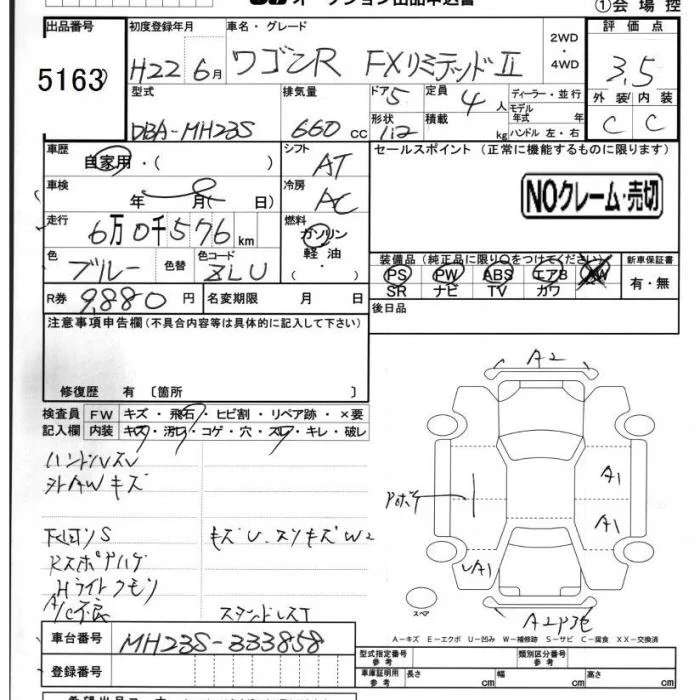 ①会場控
出品番号
初度登録年月
車名・グレード
評価点
5163
H22 6月
ワゴンR FXリミテッドⅡ
2WD・4WD
3.5
型式
排気量
ドア 5
定員 4人
ディーラー・並行
外装 内装
DBA-MH23S
660cc
形状
積載 kg
モデル年式 年
ハンドル 左・右
C C
車歴
自家用・( )
シフト
AT
セールスポイント (正常に機能するものに限ります)
車検
年 月( 日)
冷房
AC
NOクレーム・売切
走行
6万0千576km
燃料
ガソリン
軽油
・( )
色
ブルー
色替
色コード
ZLU
装備品(純正品に限り○をつけてください)
新車保証書
PS PW ABS エアB AW
有・無
SR ナビ TV カワ
R券 9,880円
名変期限 月 日
後日品
注意事項申告欄(不具合内容等は具体的に記入して下さい)
修復歴 有 〔箇所 〕
検査員 FW キズ・飛石・ヒビ割・リペア跡・×要
記入欄 内装 キズ・汚レ・コゲ・穴・スレ・キレ・破レ
ハンドルスレ
外AWキズ
キズU スリキズW2
Hライトクモリ
A/C不良
A2
A1
A1
A1
スペア
A-キズ E-エクボ U-凹み W-補修跡 S-サビ C-腐食 XX-交換済
車台番号 MH23S-333858
登録番号
型式指定番号 参考
類別区分番号 参考
車庫証明用 参考 長さ cm 幅 cm 高さ cm